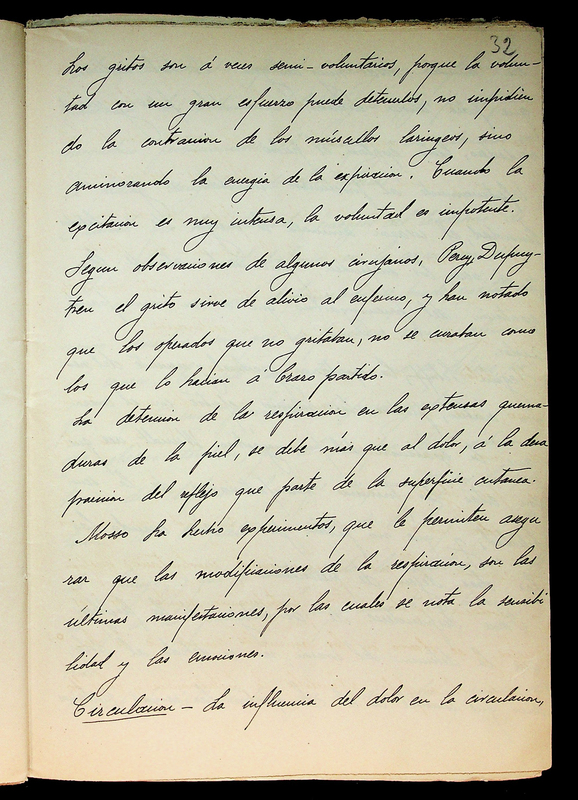 32
Los gritos son á veces semi-voluntarios, porque la volun-
tad con un gran esfuerzo puede detenerlos, no impidien
do la contraccion de los músculos laringeos, sino
aminorando la energia de la expiracion. Cuando la
excitacion es muy intensa, la voluntad es impotente.
Segun observaciones de algunos cirujanos, Percy, Dupuy-
tren el grito sirve de alivio al enfermo, y han notado
que los operados que no gritaban, no se curaban como
los que lo hacian á brazo partido.
La detencion de la respiracion en las extensas quema-
duras de la piel, se debe más que al dolor, á la desa
paricion del reflejo que parte de la superficie cutanea.
Mosso ha hecho experimentos, que le permiten asegu
rar que las modificaciones de la respiracion, son las
últimas manifestaciones, por las cuales se nota la sensibi
lidad y las emociones.
Circulacion - La influencia del dolor en la circulacion,